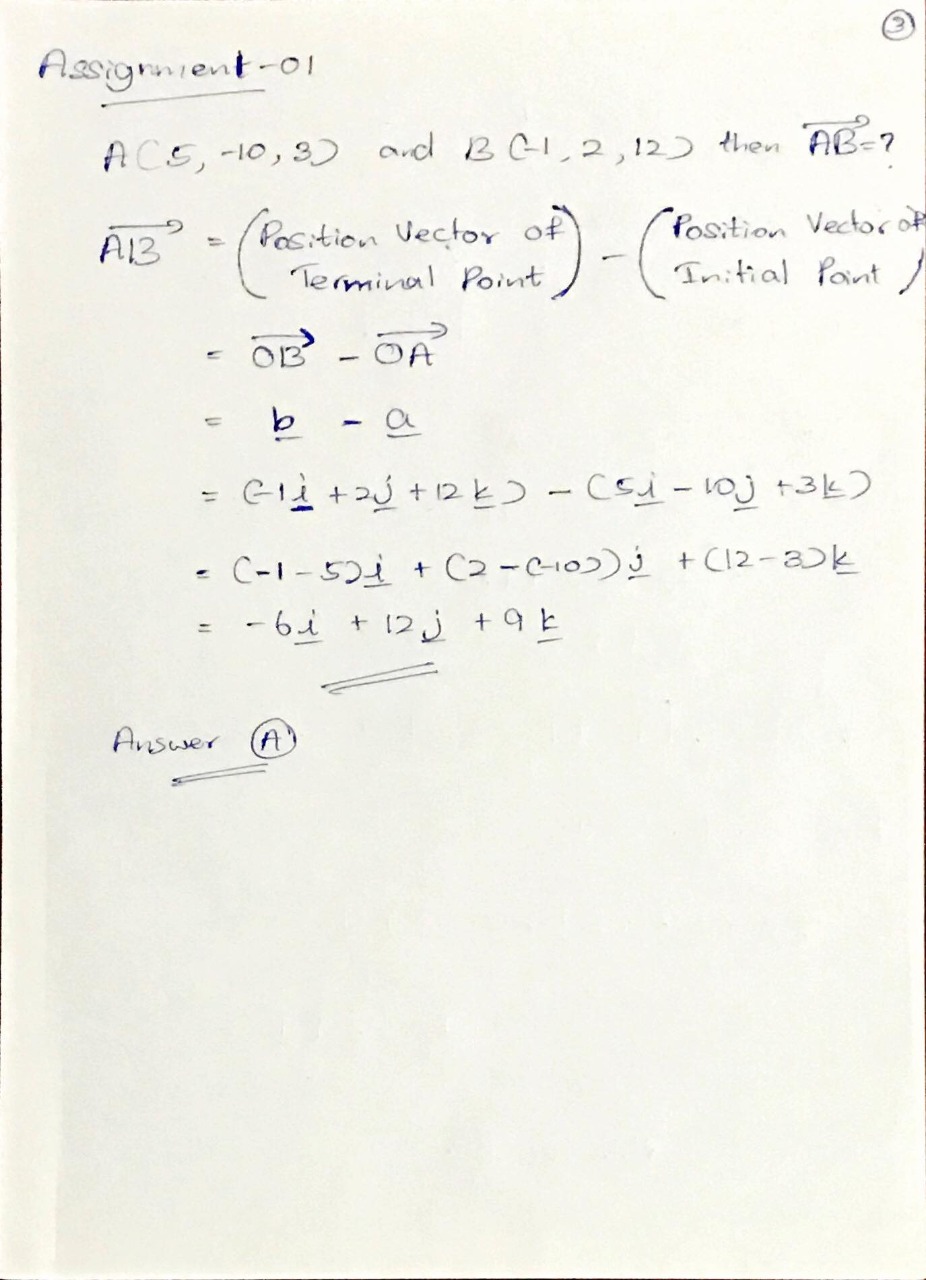 ③
Assignment-01
A(5, -10, 3) and B(-1, 2, 12) then AB⃗=?
AB⃗ = (Position Vector of Terminal Point) - (Position Vector of Initial Point)
= OB⃗ - OA⃗
= b̲ - a̲
= (-1i̲ + 2j̲ + 12k̲) - (5i̲ - 10j̲ + 3k̲)
= (-1-5)i̲ + (2-(-10))j̲ + (12-3)k̲
= -6i̲ + 12j̲ + 9k̲
Answer Ⓐ